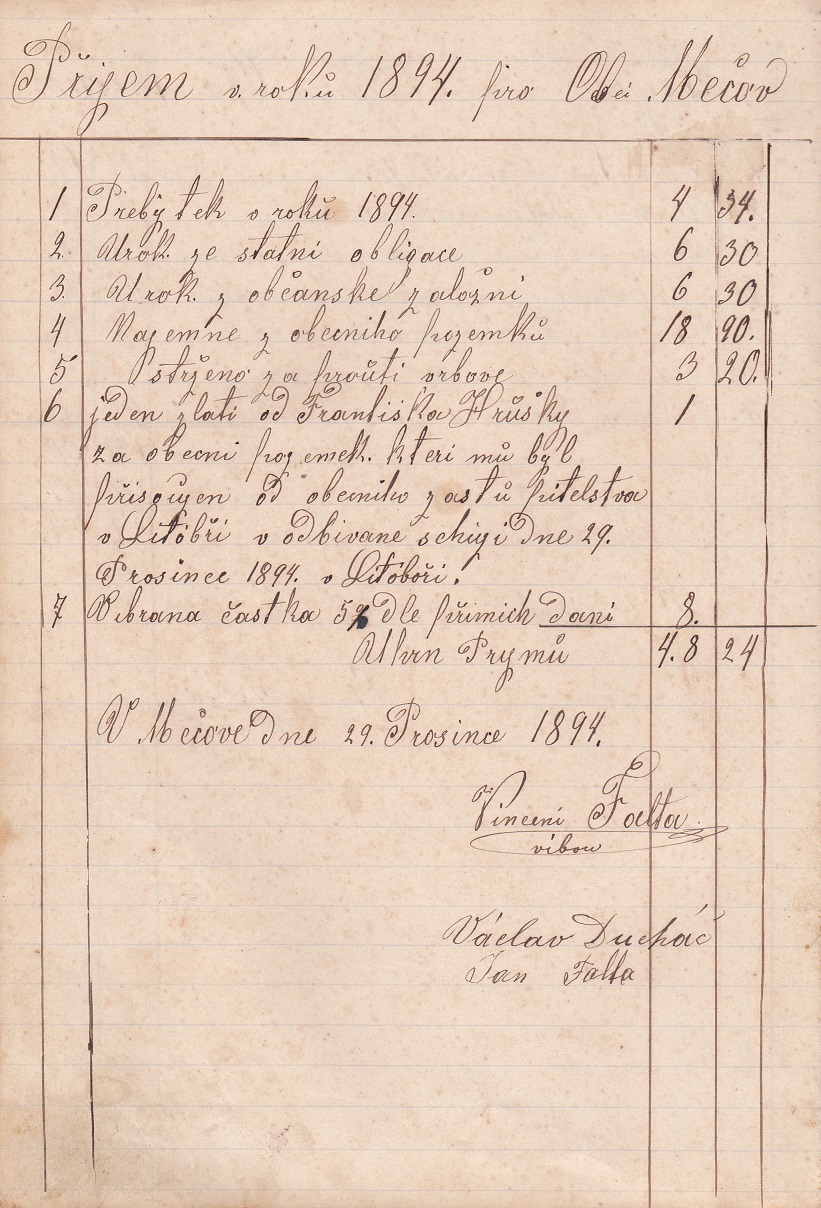 Přijem v roků 1894. pro Obci Mečov
1 Přebytek v roků 1894. 4 34.
2. Urok ze statni obligace 6 30
3. Urok z občanske založni 6 30
4 Najemne z obecniho pozemků 18 90.
5 Strženo za proůti vrbove 3 20.
6 jeden zlati od Františka Hrůšky 1
za obecni pozemek. kteri mů byl
přisouzen od obecniho zastůpitelstva
v Litoboři v odbivane schizi dne 29.
Prosince 1894. v Litoboři.
7 Vibrana častka 5% dle přimich dani 8.
Uhrn Prymů 4.8 24
V Mečove dne 29. Prosince 1894.
Vincenc Falta
vibou
Václav Ducháč
Jan Falta